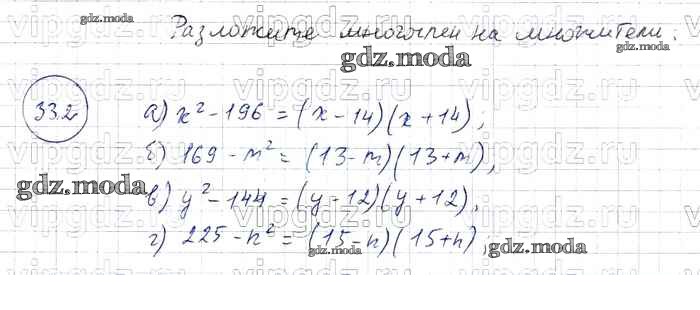 Разложите многочлен на множители.
gdz.moda
gdz.moda
gdz.moda
33.2
а) x² - 196 = (x - 14)(x + 14),
б) 169 - m² = (13 - m)(13 + m),
gdz.moda
в) y² - 144 = (y - 12)(y + 12),
г) 225 - n² = (15 - n)(15 + n),
gdz.moda
gdz.moda